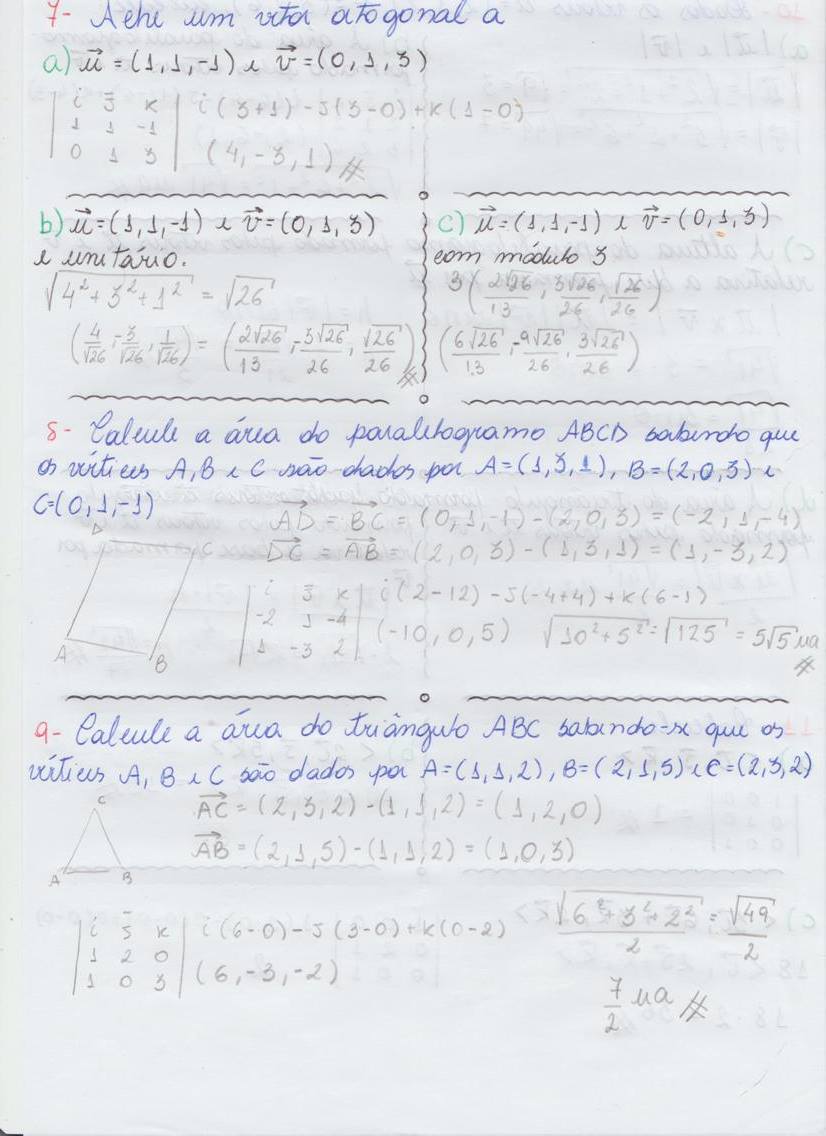 7- Ache um vetor ortogonal a
a) u⃗ = (1,1,-1) e v⃗ = (0,1,3)
| i j k | i(3+1)-j(3-0)+k(1-0)
| 1 1 -1 |
| 0 1 3 | (4,-3,1)//
b) u⃗=(1,1,-1) e v⃗=(0,1,3)
e unitário.
√4²+3²+1² = √26
(4/√26, -3/√26, 1/√26) = (2√26/13, -3√26/26, √26/26)//
c) u⃗=(1,1,-1) e v⃗=(0,1,3)
com módulo 3
3(2√26/13, 3√26/26, √26/26)
(6√26/13, -9√26/26, 3√26/26)
8- Calcule a área do paralelogramo ABCD sabendo que
os vértices A, B e C são dados por A=(1,3,1), B=(2,0,3) e
C=(0,1,-1)
AD⃗ = BC⃗ = (0,1,-1)-(2,0,3) = (-2,1,-4)
DC⃗ = AB⃗ = (2,0,3)-(1,3,1) = (1,-3,2)
D C
A B
| i j k | i(2-12)-j(-4+4)+k(6-1)
| -2 1 -4 | (-10,0,5) √10²+5² = √125 = 5√5 ua
| 1 -3 2 | //
9- Calcule a área do triângulo ABC sabendo-se que os
vértices A, B e C são dados por A=(1,1,2), B=(2,1,5) e C=(2,3,2)
C
AC⃗ = (2,3,2)-(1,1,2) = (1,2,0)
AB⃗ = (2,1,5)-(1,1,2) = (1,0,3)
A B
| i j k | i(6-0)-j(3-0)+k(0-2)
| 1 2 0 |
| 1 0 3 | (6,-3,-2)
√6²+3²+2²/2 = √49/2
7/2 ua //